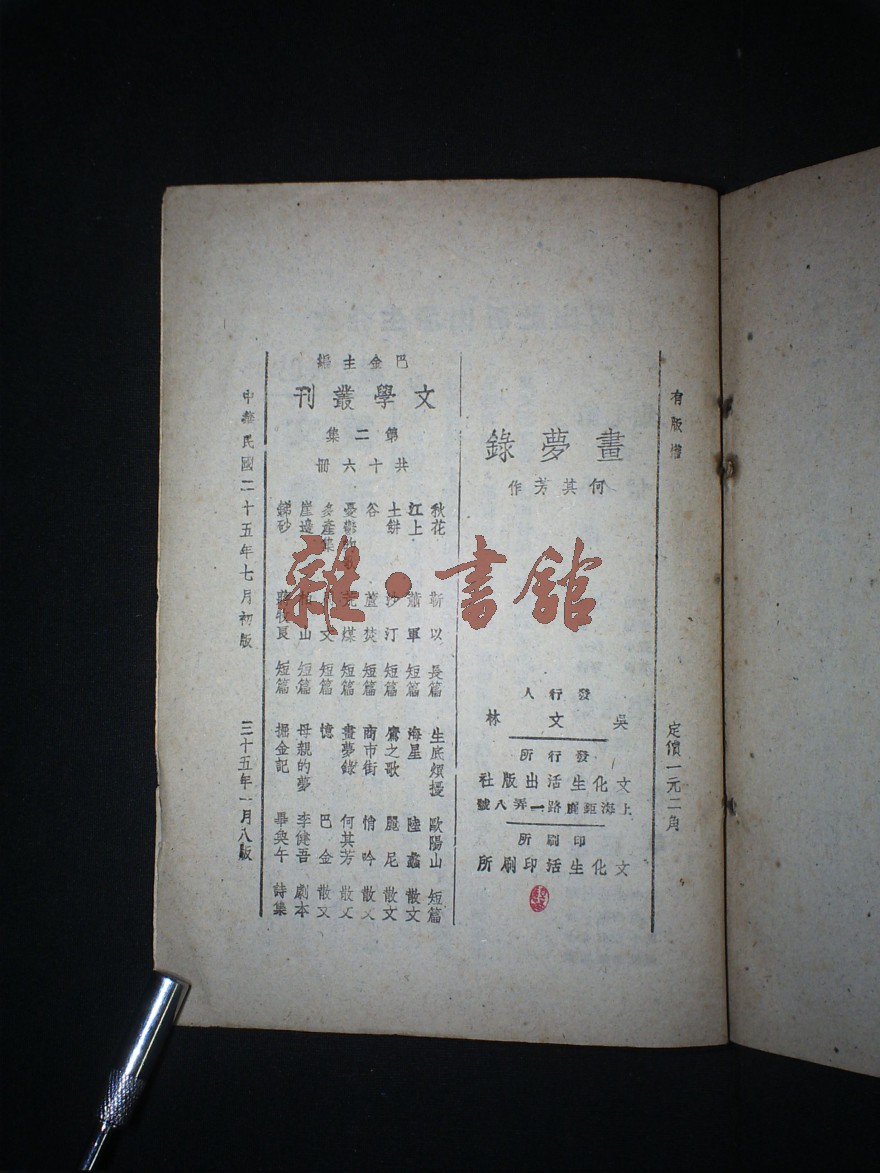 有版權
定價一元二角
畫夢錄
何其芳作
發行人
吳文林
發行所
文化生活出版社
上海鉅鹿路一弄八號
印刷所
文化生活印刷所
巴金主編
文學叢刊
第二集
共十六冊
秋花 靳以 長篇
江上 蕭軍 短篇
土餅 沙汀 短篇
谷 蘆焚 短篇
憂鬱 煤 短篇
多產集 文 短篇
崖邊 山 短篇
銻砂 蔣牧良 短篇
生底煩擾 歐陽山 短篇
海星 陸蠡 散文
鷹之歌 麗尼 散文
商市街 悄吟 散文
畫夢錄 何其芳 散文
憶 巴金 散文
母親的夢 李健吾 劇本
掘金記 畢奐午 詩集
中華民國二十五年七月初版
三十五年一月八版
雜·書館